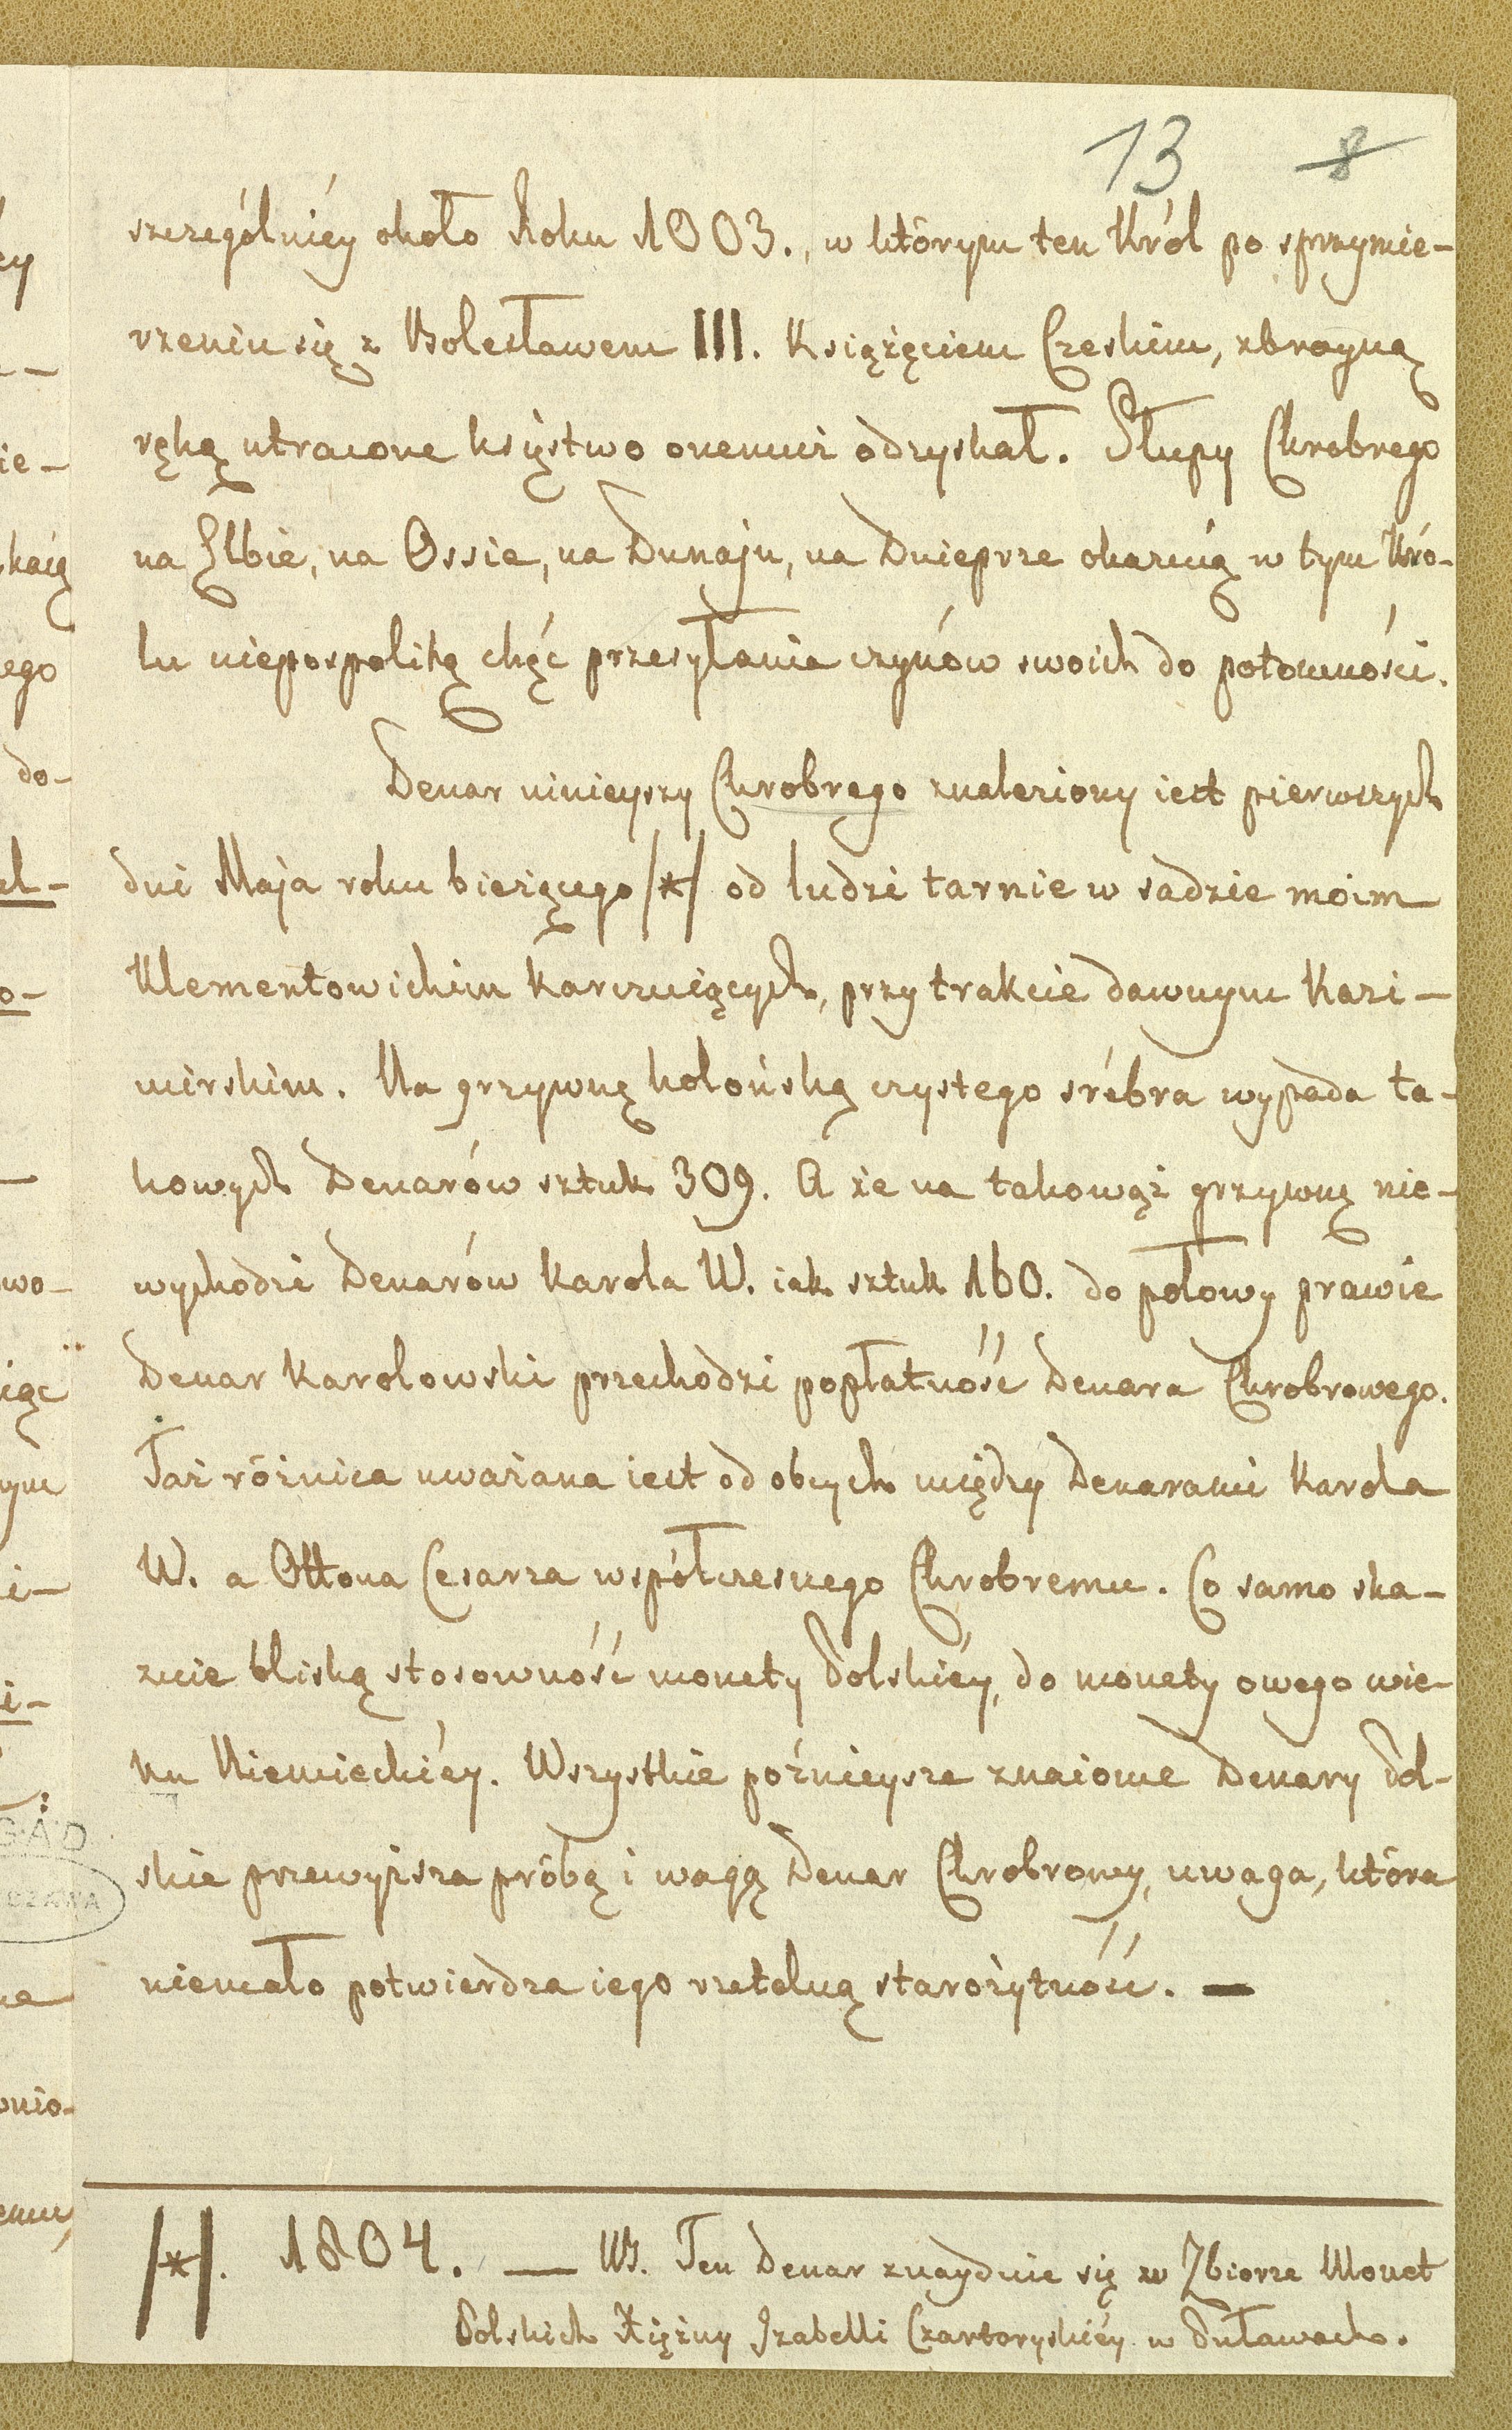 13 8
szczególniéy około Roku 1003., w którym ten Król po sprzymie-
rzeniu się z Bolesławem III. Książęciem Czeskim, zbroyną
ręką utracone księstwo onemuż odzyskał. Słupy Chrobrego
na Elbie, na Ossie, na Dunaju, na Dnieprze okazuią w tym Kró-
lu niepospolitą chęć przesyłania czynów swoich do potomności.
Denar ninieyszy Chrobrego znaleziony iest pierwszych
dni Maja roku bieżącego /*/ od ludzi tarnie w sadzie moim
Klementowickim karczuiących, przy trakcie dawnym Kazi-
mirskim. Na grzywnę kolońską czystego srébra wypada ta-
kowych Denarów sztuk 309. A że na takowąż grzywnę nie-
wychodzi Denarów Karola W. iak sztuk 160. do połowy prawie
Denar Karolowski przechodzi popłatność Denara Chrobrowego.
Taż różnica uważana iest od obcych między Denarami Karola
W. a Ottona Cesarza współczesnego Chrobremu. Co samo ska-
zuie bliską stosowność monety Polskiéy, do monety owego wie-
ku Niemieckiéy. Wszystkie poźnieysze znaiome Denary Pol-
skie przewyższa próbą i wagą Denar Chrobrowy, uwaga, która
niemało potwierdza iego rzetelną starożytność. —
/*/. 1804. — NB. Ten Denar znayduie się w Zbiorze Monet
Polskich Xiężny Izabelli Czartoryskiéy w Puławach.